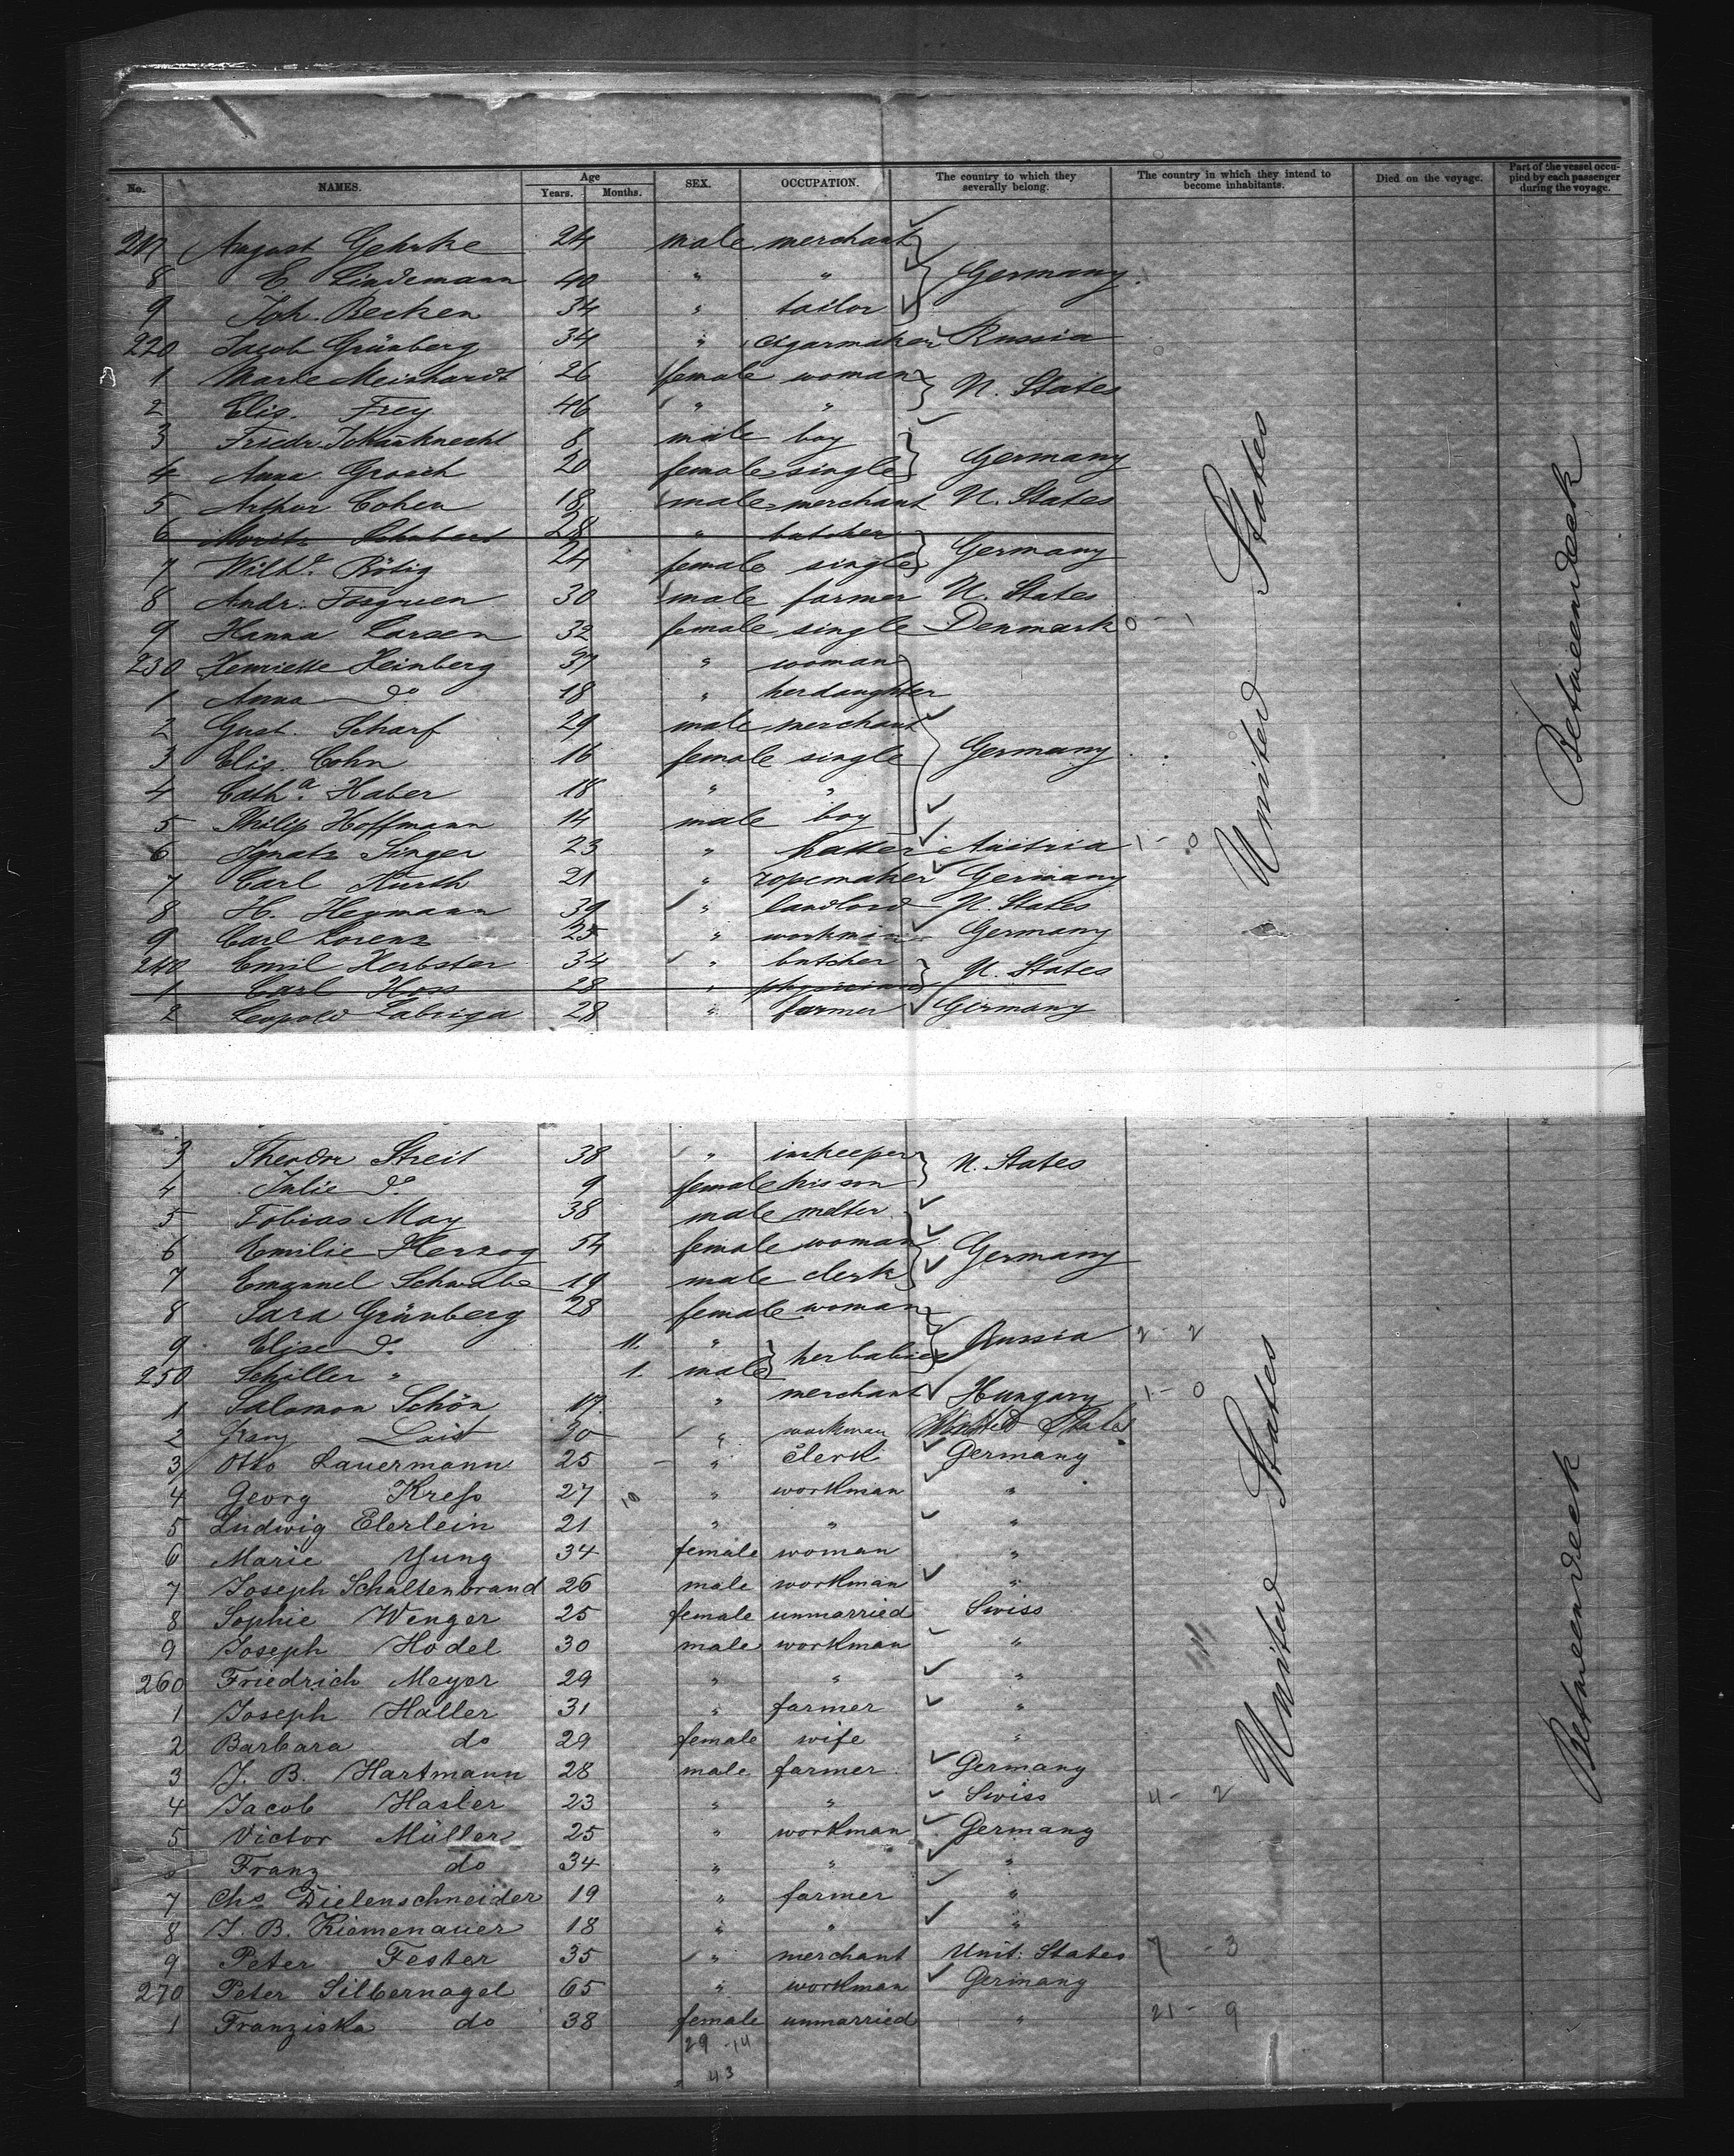 No. NAMES. Age Years. Months. SEX. OCCUPATION. The country to which they severally belong. The country in which they intend to become inhabitants. Died on the voyage. Part of the vessel occupied by each passenger during the voyage.
217 August Gehrke 24 male merchant
8 E. Lindemann 40 " " Germany
9 Joh. Becken 34 " tailor
220 Jacob Grünberg 34 " cigarmaker Russia
1 Marie Meinhardt 26 female woman U. States
2 Elis. Frey 46 " "
3 Friedr. 8 male boy
4 Anna Grosch 20 female single Germany
5 Arthur Cohen 18 male merchant U. States
6 Moritz Schubert 28 " butcher
7 Wilh.e Rötig 24 female single Germany
8 Andr. 30 male farmer U. States
9 Hanna Larsen 32 female single Denmark 0 - 1
230 Henriette Heinberg 37 " woman
1 Anna do 18 " her daughter
2 Gust. Scharf 29 male merchant
3 Elis. Cohn 16 female single Germany
4 Cath.a Haber 18 " "
5 Philip Hoffmann 14 male boy
6 Ignatz Singer 23 " hatter Austria 1 - 0
7 Carl Kurth 21 " ropemaker Germany
8 H. Heymann 39 " landlord U. States
9 Carl Lorenz 25 " workman Germany
240 Emil Herbster 34 " butcher U. States
1 Carl Hess 28 " physician
2 Leopold Labriga 28 " farmer Germany
United States
Betweendeck
3 Theodor Streit 38 " innkeeper U. States
4 Julie do 9 female his son
5 Tobias May 38 male melter
6 Emilie Herzog 54 female woman Germany
7 Emanuel Schwabe 19 male clerk
8 Sara Grünberg 28 female woman
9 Elise do 11. " her babies Russia 2 - 2
250 Schiller " 1. male
1 Salomon Schön 17 " merchant Hungary 1 - 0
2 Franz Laist 30 " workman United States
3 Otto Lauermann 25 " Clerk Germany
4 Georg Kreß 27 10 " workman "
5 Ludwig Elerlein 21 " " "
6 Marie Yung 34 female woman "
7 Joseph Schaltenbrand 26 male workman "
8 Sophie Wenger 25 female unmarried Swiss
9 Joseph Hodel 30 male workman "
260 Friedrich Meyer 29 " " "
1 Joseph Haller 31 " farmer "
2 Barbara do 29 female wife "
3 J. B. Hartmann 28 male farmer Germany
4 Jacob Hasler 23 " " Swiss 4 - 2
5 Victor Müller 25 " workman Germany
Franz do 34 " " "
7 Chs Dielenschneider 19 " farmer "
8 J. B. Riemenauer 18 " " "
9 Peter Fester 35 " merchant Unit. States 7 - 3
270 Peter Silbernagel 65 " workman Germany
1 Franziska do 38 female unmarried " 21 - 9
29 - 14
43
United States
Betweendeck